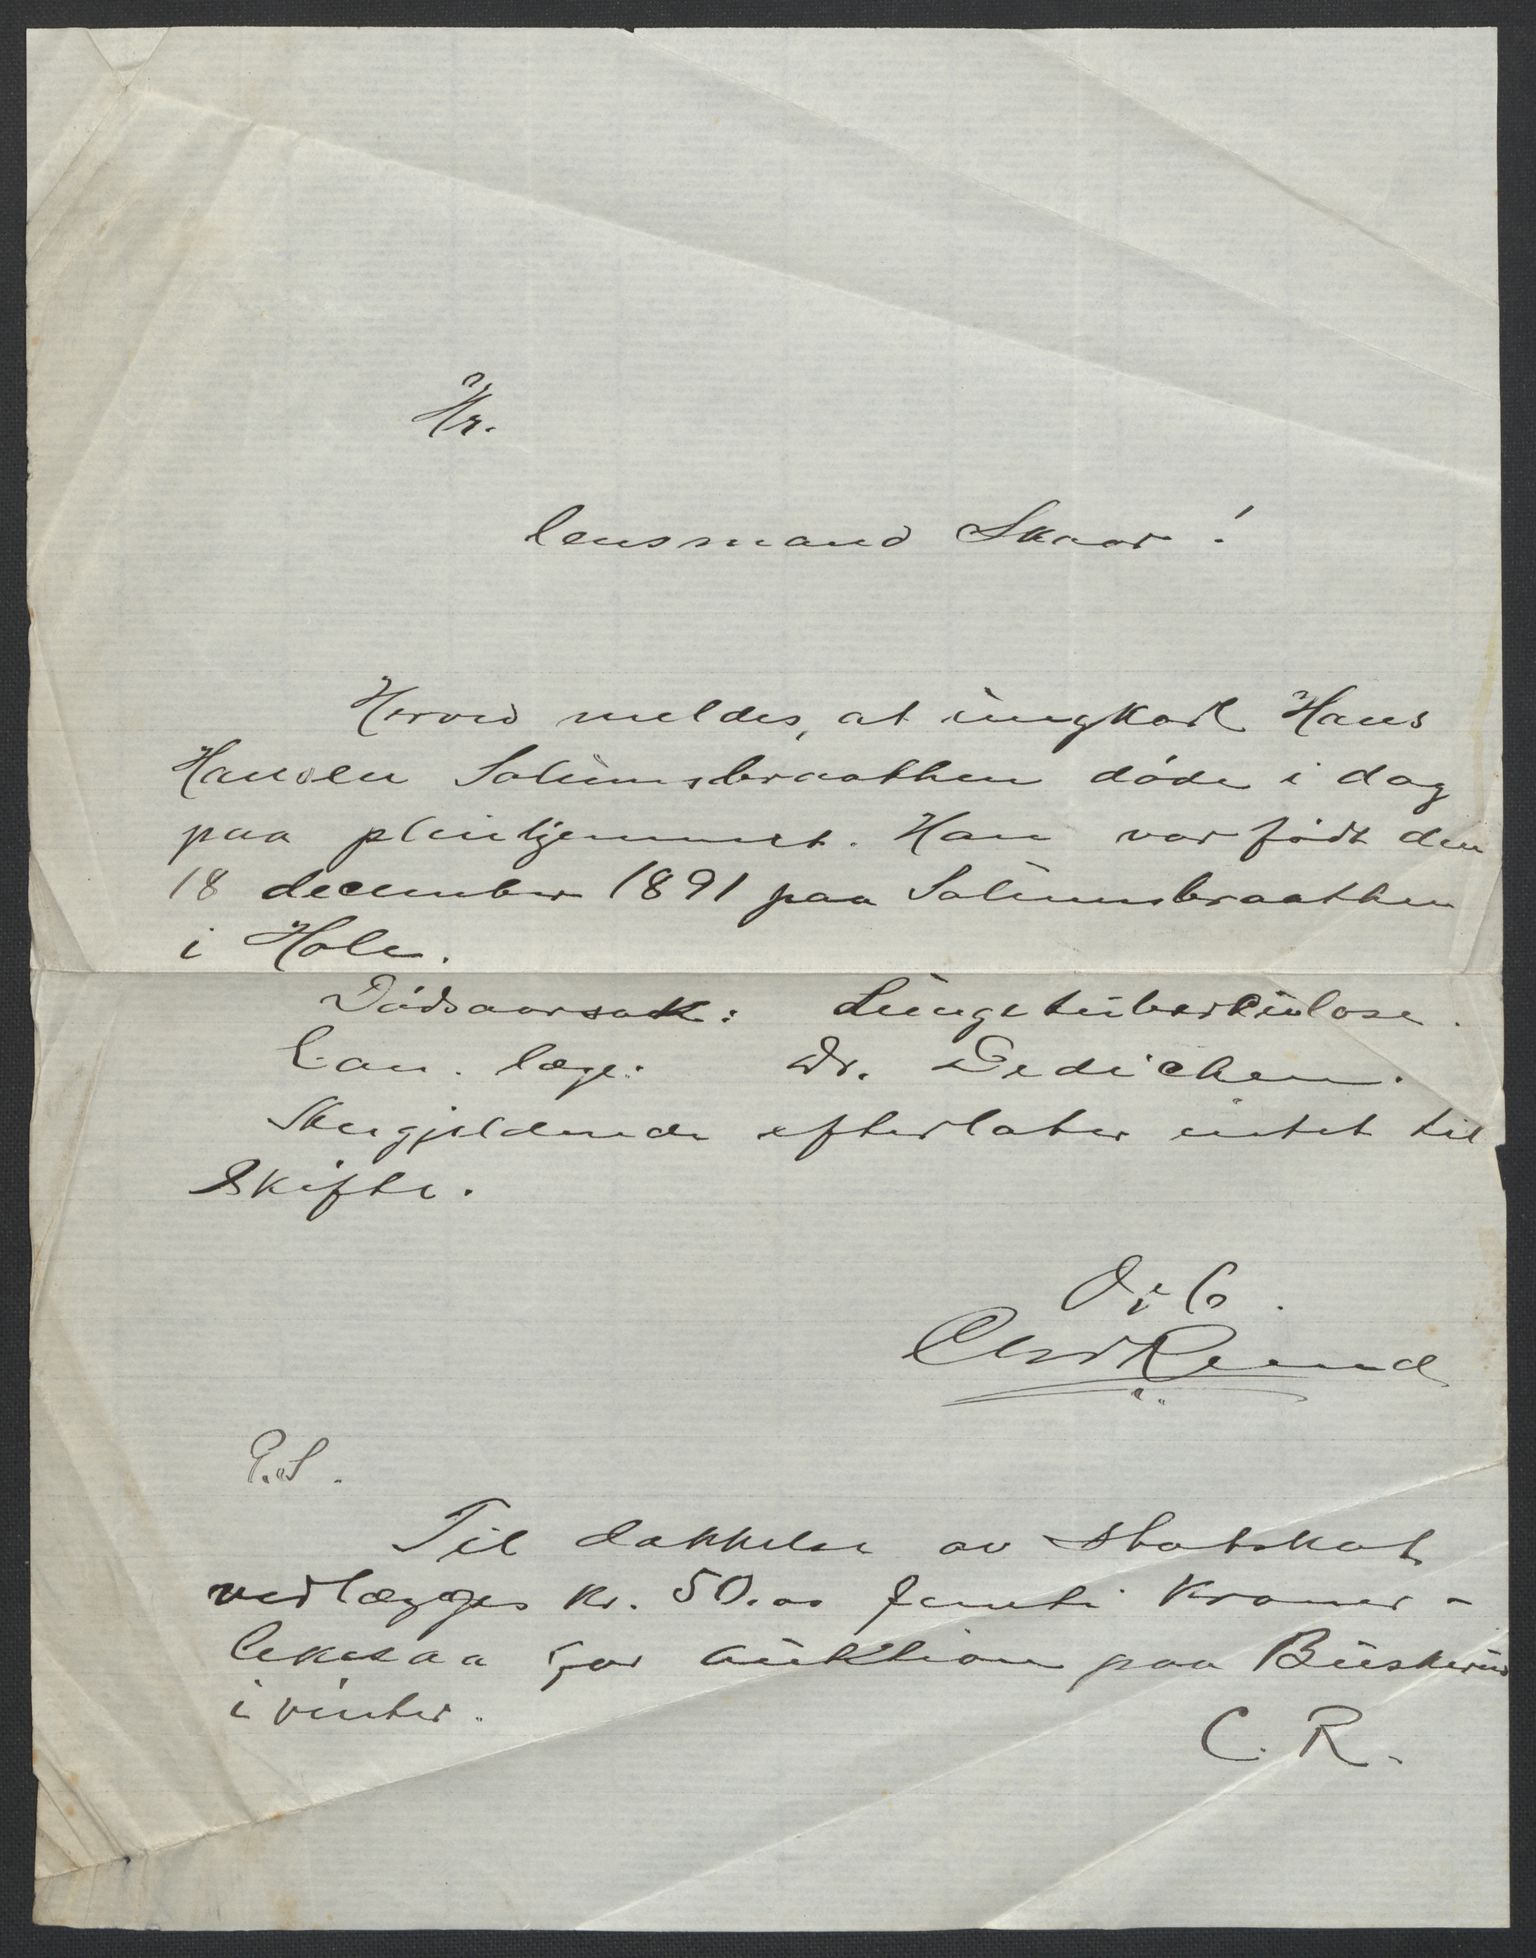 Hr.
lensmand Skaar!
Herved meldes, at ungkarl Hans
Hansen Solumsbraathen døde i dag
paa pleiehjemmet. Han var født den
18 december 1891 paa Solumsbraathen
i Hole.
Dødsaarsak: Lungetuberkulose.
Can. læge: Dr. Dedichen.
Skugjeldende efterlater intet til
Skifte.
P.S.
Til dækkelse av Statskat
vedlægges kr. 50.00 femti kroner -
likesaa for auktion paa Buskerud
i vinter.
C. R.